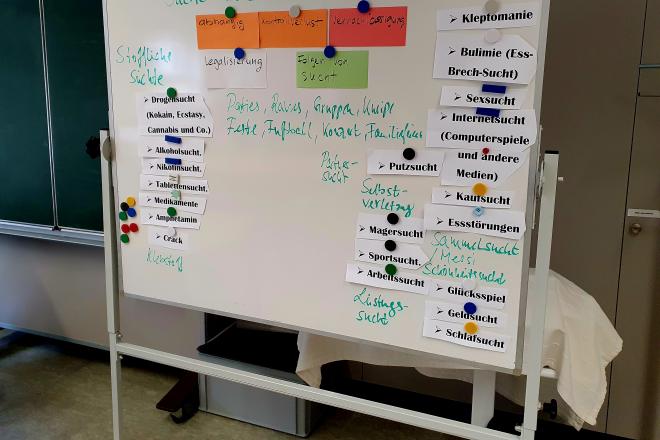 abhängig
Kontrollverlust
Vernachlässigung
Legalisierung
Folgen von
Sucht
Stoffliche
Süchte
➤ Drogensucht
(Kokain, Ecstasy,
Cannabis und Co.)
➤ Alkoholsucht.
➤ Nikotinsucht.
➤ Tablettensucht.
➤ Medikamente
➤ Amphetamin
➤ Crack
Klebstoff
Parties, Raves, Gruppen, Kneipe
Feste, Fußball, Konzert, Familienfeier
sucht
➤ Putzsucht
Selbst-
verletzung
➤ Magersucht
➤ Sportsucht.
➤ Arbeitssucht
sucht
➤ Kleptomanie
➤ Bulimie (Ess-
Brech-Sucht)
➤ Sexsucht
➤ Internetsucht
(Computerspiele
und andere
Medien)
➤ Kaufsucht
➤ Essstörungen
Sammelsucht
/ Messi
Schönheitssucht
➤ Glücksspiel
➤ Geldsucht
➤ Schlafsucht